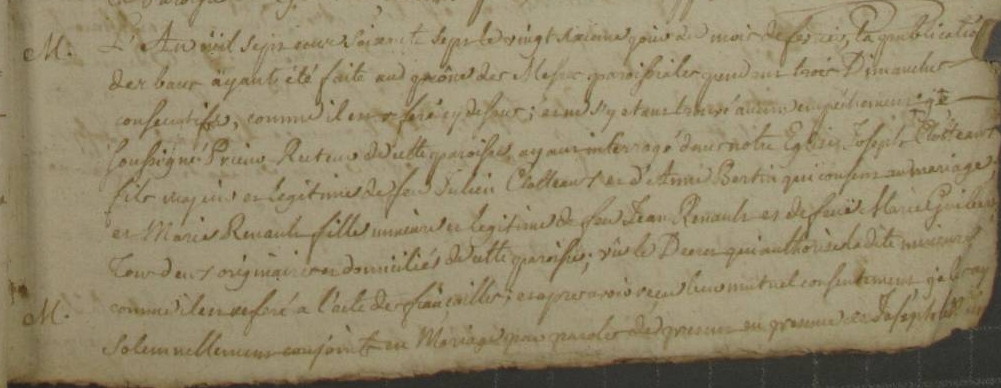 M. L'An mil sept cent soixante sept le vingt sixieme jour du mois de fevrier, la publication
des bans ayante été faite au prône des Messes paroissiales pendant trois Dimanches
consecutifs, comme il est referé cy dessus; et ne s'y etant trouvé aucun empêchement je
soussigné Prieur Recteur de cette paroisse, ayant interrogé dans notre Eglise Joseph Clotteaux
fils majeur et legitime de feu Julien Clotteaux et d'Anne Bertin qui consent au mariage,
et Marie Renault fille mineure et legitime de feu Jean Renault et de feuë Marie
Tous deux originaires et domiciliés de cette paroisse; vû le Decret qui authorise la dite mineure
comme il est referé a l'acte de fiançailles; et apres avoir reçu leur mutuel consentement je les ay
M. solemnellement conjoints en Mariage par paroles de present en presence de Joseph